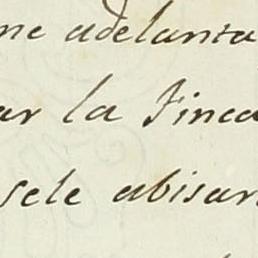 me adelanta
ar la Finca
sele abisar